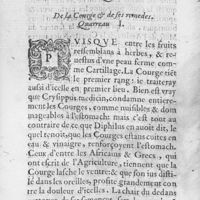 De la Courge & de ses remedes.
Quatreau I.
PUISQUE entre les fruits
ressemblans à herbes, & re-
uestus d'vne peau ferme com-
me Cartillage. La Courge tiēt
le premier rang: ie traiteray
aussi d'icelle en premier lieu. Bien est vray
que Crysippus medicin, condamne entiere-
ment les Courges, comme nuisibles & dom-
mageables à l'estomach: mais c'est tout le
contraire de ce que Diphilus en auoit dit, le
quel tenoit, que les Courges estans cuites en
eau & vinaigre, renforçoyent l'estomach.
Ceux d'entre les Africains & Grecs, qui
ont escrit de l'Agriculture, tiennent que la
Courge lasche le ventre: & que son ius distil-
lé dans les oreilles, profite grandement con-
tre la douleur d'icelles. La chair du dedans